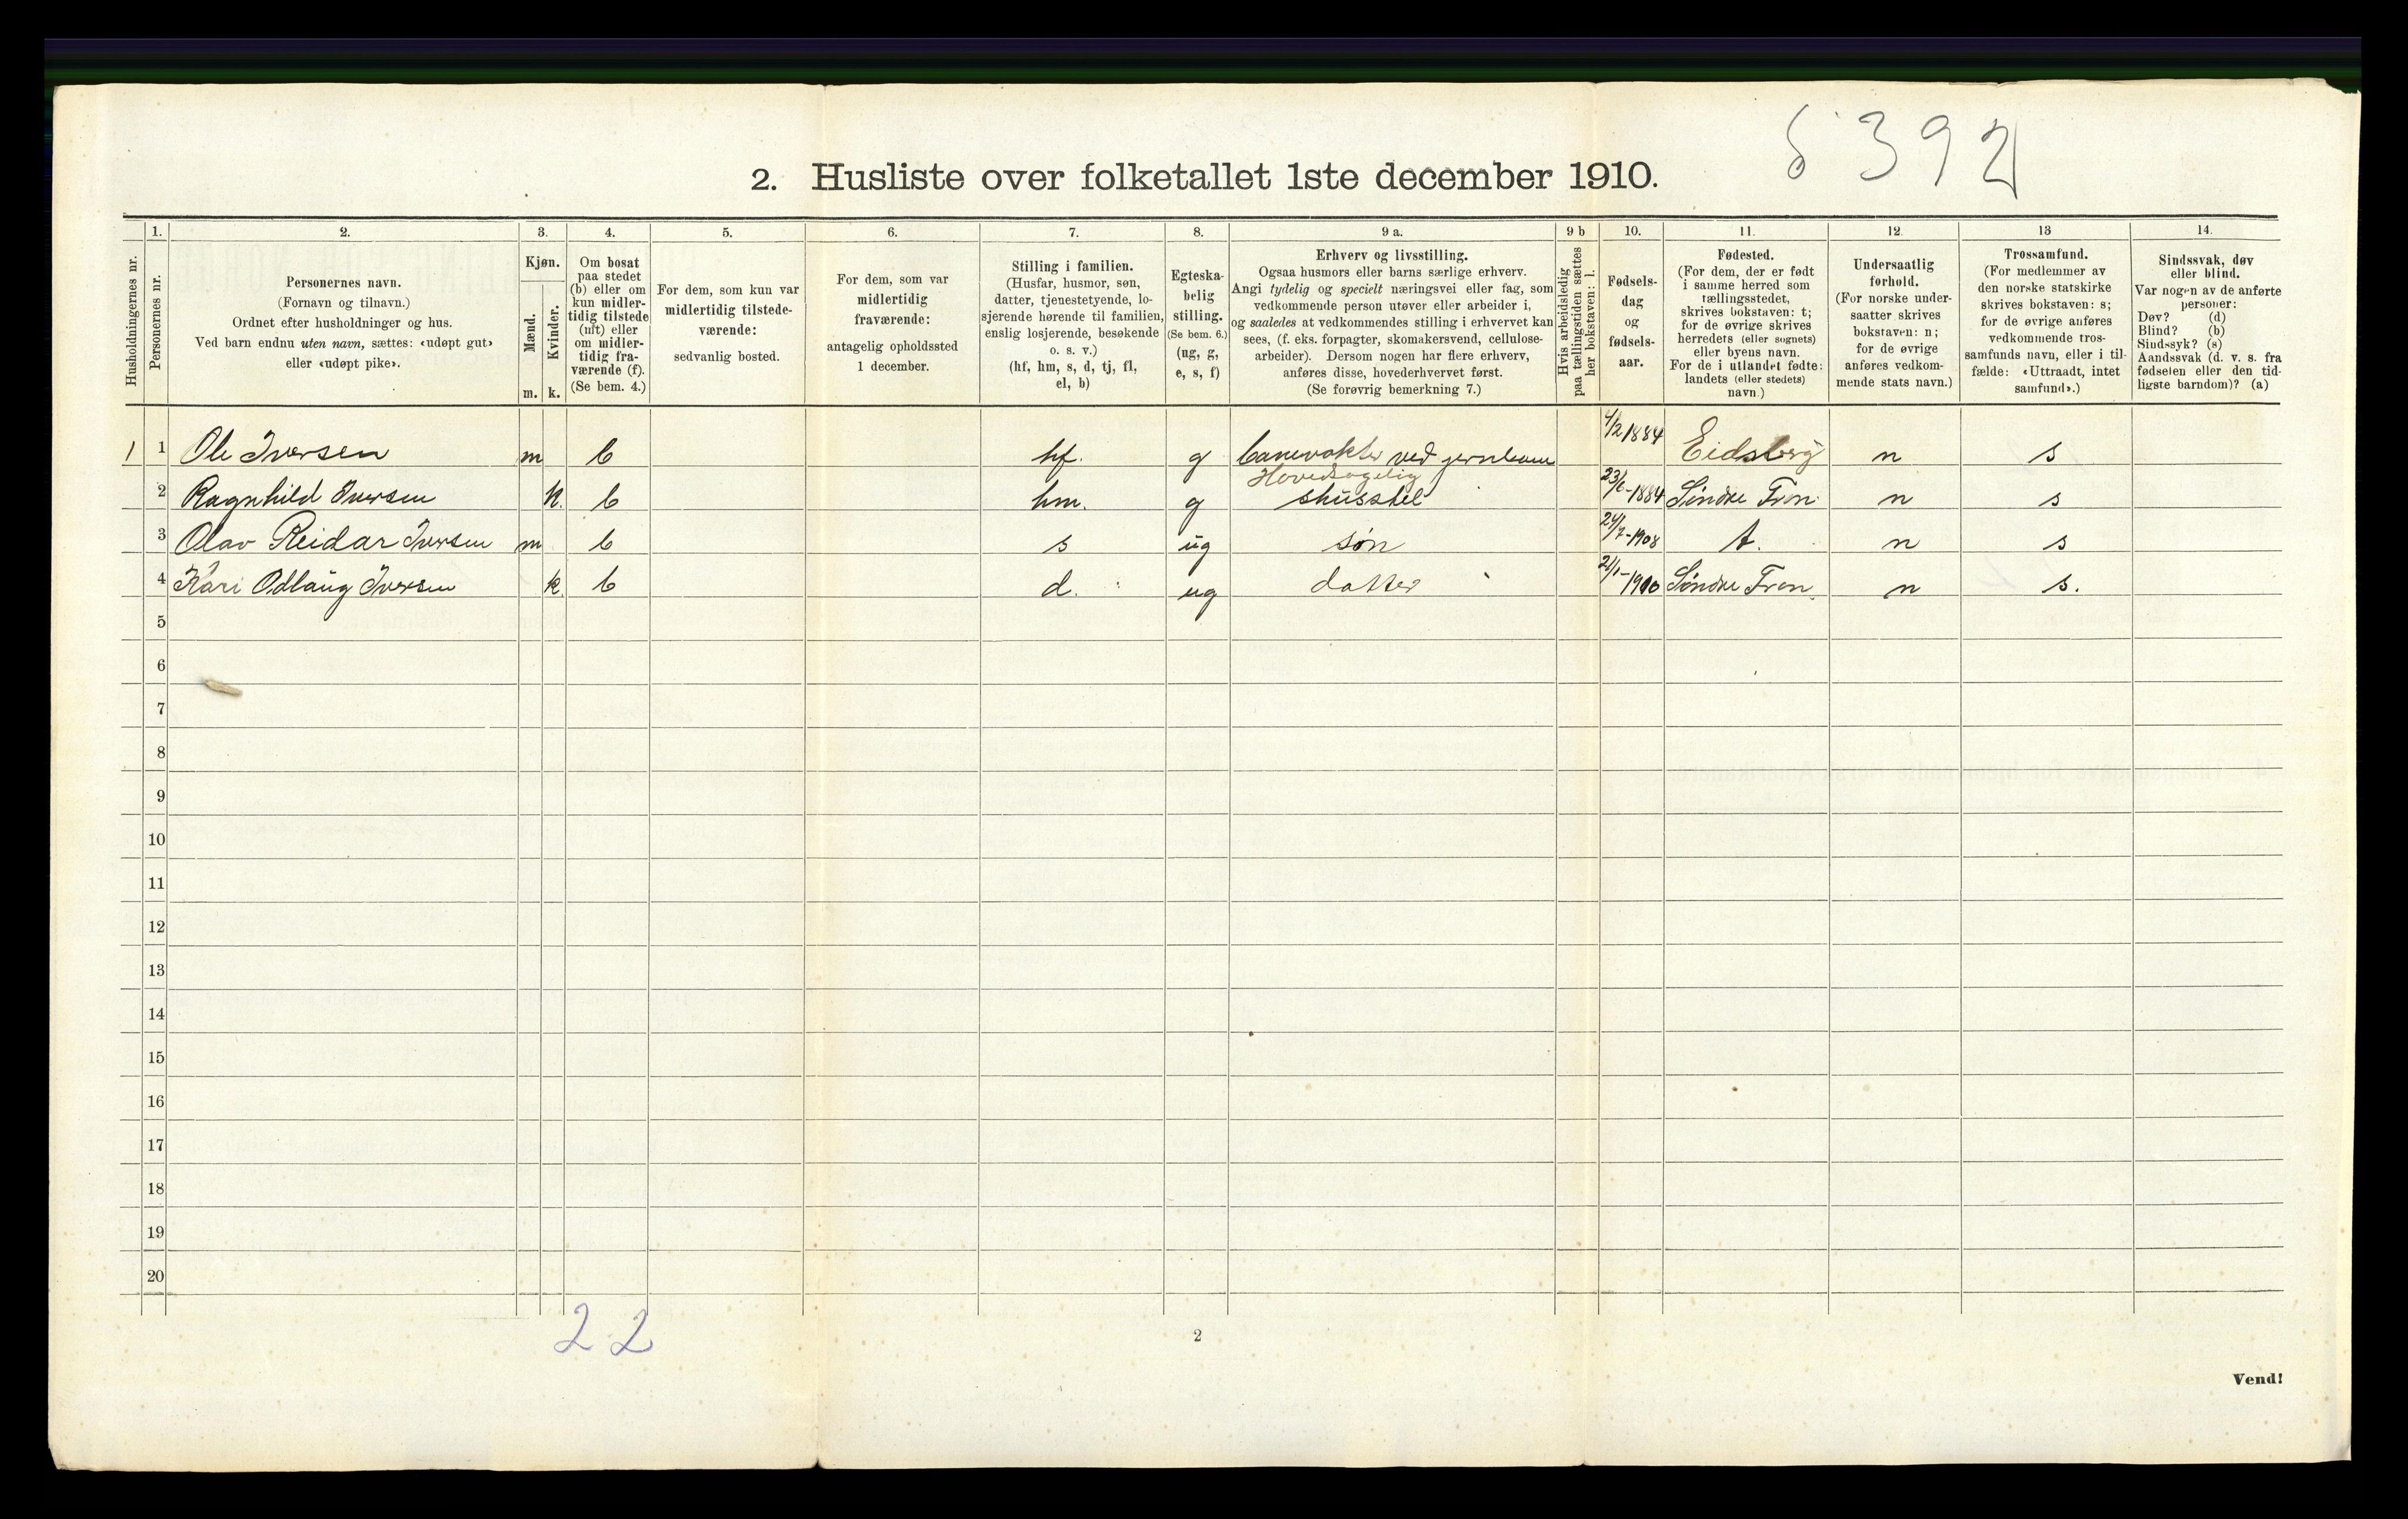 6392
2. Husliste over folketallet 1ste december 1910.
Husholdningernes nr.
1.
Personernes nr.
2.
Personernes navn.
(Fornavn og tilnavn.)
Ordnet efter husholdninger og hus.
Ved barn endnu uten navn, sættes: «udøpt gut»
eller «udøpt pike».
3.
Kjøn.
Mænd.
Kvinder.
m. k.
4.
Om bosat
paa stedet
(b) eller om
kun midler-
tidig tilstede
(mt) eller
om midler-
tidig fra-
værende (f).
(Se bem. 4.)
5.
For dem, som kun var
midlertidig tilstede-
værende:
sedvanlig bosted.
6.
For dem, som var
midlertidig
fraværende:
antagelig opholdssted
1 december.
7.
Stilling i familien.
(Husfar, husmor, søn,
datter, tjenestetyende, lo-
sjerende hørende til familien,
enslig losjerende, besøkende
o. s. v.)
(hf, hm, s, d, tj, fl,
el, b)
8.
Egteska-
belig
stilling.
(Se bem. 6.)
(ug, g,
e, s, f)
9 a.
Erhverv og livsstilling.
Ogsaa husmors eller barns særlige erhverv.
Angi tydelig og specielt næringsvei eller fag, som
vedkommende person utøver eller arbeider i,
og saaledes at vedkommendes stilling i erhvervet kan
sees, (f. eks. forpagter, skomakersvend, cellulose-
arbeider). Dersom nogen har flere erhverv,
anføres disse, hovederhvervet først.
(Se forøvrig bemerkning 7.)
9 b
Hvis arbeidsledig
paa tællingstiden sættes
her bokstaven: l.
10.
Fødsels-
dag
og
fødsels-
aar.
11.
Fødested.
(For dem, der er født
i samme herred som
tællingsstedet,
skrives bokstaven: t;
for de øvrige skrives
herredets (eller sognets)
eller byens navn.
For de i utlandet fødte:
landets (eller stedets)
navn.)
12.
Undersaatlig
forhold.
(For norske under-
saatter skrives
bokstaven: n;
for de øvrige
anføres vedkom-
mende stats navn.)
13
Trossamfund.
(For medlemmer av
den norske statskirke
skrives bokstaven: s;
for de øvrige anføres
vedkommende tros-
samfunds navn, eller i til-
fælde: «Uttraadt, intet
samfund».)
14.
Sindssvak, døv
eller blind.
Var nogen av de anførte
personer:
Døv? (d)
Blind? (b)
Sindssyk? (s)
Aandssvak (d. v. s. fra
fødselen eller den tid-
ligste barndom)? (a)
1 1 Ole Iversen m b hf. g banevokter ved jernbane 4/2 1884 Eidsberg n s
2 Ragnhild Iversen k. b hm. g Hovedsagelig husstel 23/6-1884 Søndre Fron n s
3 Olav Reidar Iversen m b s ug søn 24/7-1908 t. n s
4 Kari Odlaug Iversen k. b d. ug datter 21/1-1910 Søndre Fron. n s.
5
6
7
8
9
10
11
12
13
14
15
16
17
18
19
20
2 2
2
Vend!